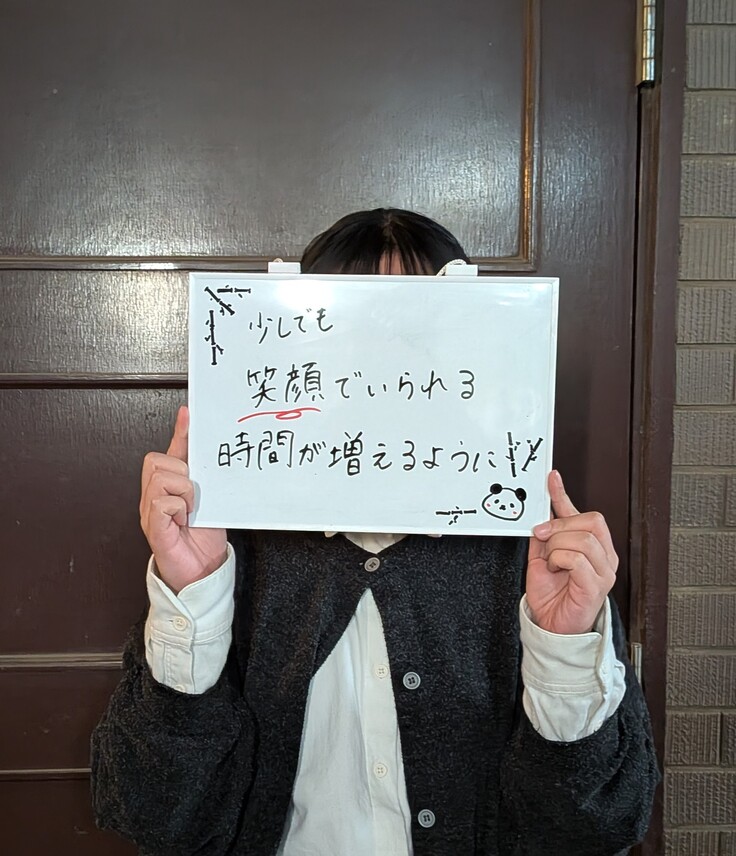 少しでも
笑顔でいられる
時間が増えるように